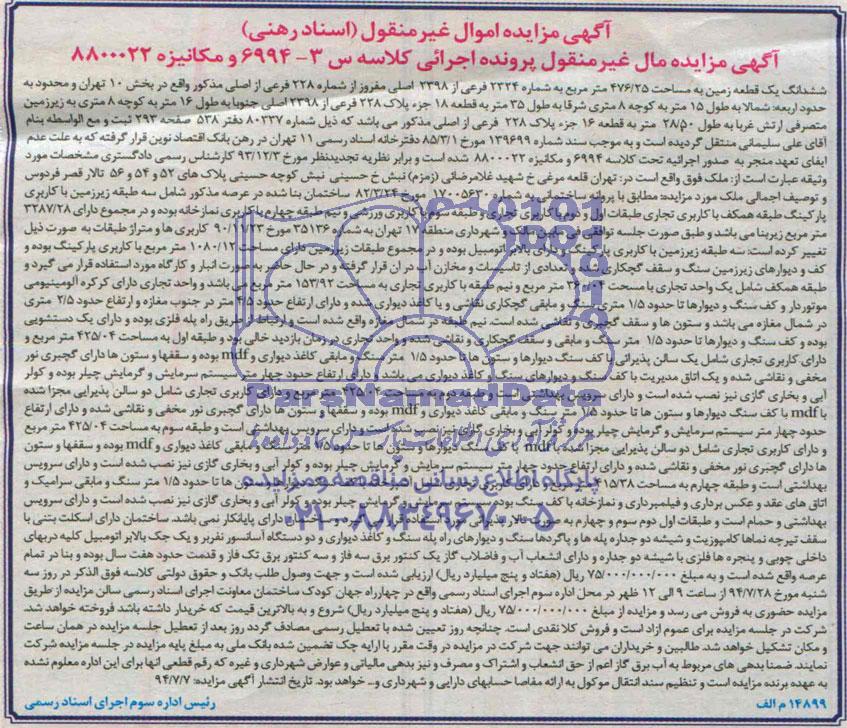 آگهی مزایده اموال غیرمنقول (اسناد رهنی)
آگهی مزایده مال غیرمنقول پرونده اجرائی کلاسه س ۳- ۶۹۹۴ و مکانیزه ۸۸۰۰۰۲۲
ششدانگ یک قطعه زمین به مساحت ۴۷۶/۲۵ متر مربع به شماره ۲۳۲۴ فرعی از ۲۳۹۸ اصلی مفروز از شماره ۲۲۸ فرعی از اصلی مذکور واقع در بخش ۱۰ تهران و محدود به
حدود اربعه: شمالا به طول ۱۵ متر به کوچه ۸ متری شرقا به طول ۳۵ متر به قطعه ۱۸ جزء پلاک ۲۲۸ فرعی از ۲۳۹۸ اصلی جنوبا به طول ۱۶ متر به کوچه ۸ متری به زیرزمین
متصرفی ارتش غربا به طول ۲۸/۵۰ متر به قطعه ۱۶ جزء پلاک ۲۲۸ فرعی از اصلی مذکور می باشد که ذیل شماره ۸۰۳۳۷ دفتر ۵۳۸ صفحه ۲۹۳ ثبت و مع الواسطه بنام
آقای علی سلیمانی منتقل گردیده است و به موجب سند شماره ۱۳۹۶۹۹ مورخ ۸۵/۳/۱ دفترخانه اسناد رسمی ۱۱ تهران در رهن بانک اقتصاد نوین قرار گرفته که به علت عدم
ایفای تعهد منجر به صدور اجرائیه تحت کلاسه ۶۹۹۴ و مکانیزه ۸۸۰۰۰۲۲ شده است و برابر نظریه تجدیدنظر مورخ ۹۳/۱۲/۳ کارشناس رسمی دادگستری مشخصات مورد
وثیقه عبارت است از: ملک فوق واقع است در: تهران قلعه مرغی خ شهید غلامرضائی (زمزم) نبش خ حسینی نبش کوچه حسینی پلاک های ۵۲ و ۵۴ و ۵۶ تالار قصر فردوس
و توصیف اجمالی ملک مورد مزایده: مطابق با پروانه ساختمانی به شماره ۱۷۰۰۵۶۳۰ مورخ ۸۲/۳/۲۴ ساختمان بنا شده در عرصه مذکور شامل سه طبقه زیرزمین با کاربری
پارکینگ طبقه همکف با کاربری تجاری طبقات اول و دوم با کاربری تجاری و طبقه سوم با کاربری ورزشی و نیم طبقه چهارم با کاربری نمازخانه بوده و در مجموع دارای ۳۲۸۷/۲۸
متر مربع زیربنا می باشد و طبق صورت جلسه توافقی فی مابین مالک و شهرداری منطقه ۱۷ تهران به شماره ۳۵۱۳۶ مورخ ۹۰/۱۱/۲۳ کاربری ها و متراژ طبقات به صورت ذیل
تغییر کرده است: سه طبقه زیرزمین با کاربری پارکینگ و دارای بالابر اتومبیل بوده و در مجموع طبقات زیرزمین دارای مساحت ۱۰۸۰/۱۲ متر مربع با کاربری پارکینگ بوده و
کف و دیوارهای زیرزمین سنگ و سقف گچکاری شده و تعدادی از تاسیسات و مخازن آب در ان قرار گرفته و در حال حاضر به صورت انبار و کارگاه مورد استفاده قرار می گیرد و
طبقه همکف شامل یک واحد تجاری با مساحت متر مربع و نیم طبقه با کاربری تجاری به مساحت ۱۵۳/۹۲ متر مربع می باشد و واحد تجاری دارای کرکره آلومینیومی
موتوردار و کف سنگ و دیوارها تا حدود ۱/۵ متری سنگ و مابقی گچکاری نقاشی و یا کاغذ دیواری شده و دارای ارتفاع حدود ۴/۵ متر در جنوب مغازه و ارتفاع حدود ۲/۵ متری
در شمال مغازه می باشد و ستون ها و سقف گچبری و نقاشی شده است. نیم طبقه در شمال مغازه واقع شده است و ارتباط از طریق راه پله فلزی بوده و دارای یک دستشویی
بوده و کف سنگ و دیوارها تا حدود ۱/۵ متر سنگ و مابقی و سقف گچکاری و نقاشی شده و واحد تجاری در زمان بازدید خالی بود و طبقه اول به مساحت ۴۲۵/۰۴ متر مربع و
دارای کاربری تجاری شامل یک سالن پذیرائی با کف سنگ دیوارها و ستون ها تا حدود ۱/۵ متر سنگ و مابقی کاغذ دیواری و mdf بوده و سقفها و ستون ها دارای گچبری نور
مخفی و نقاشی شده و یک اتاق مدیریت با کف سنگ و دیوارهای سنگ و کاغذ دیواری می باشد. دارای ارتفاع حدود چهار متر سیستم سرمایش و گرمایش چیلر بوده و کولر
آبی و بخاری گازی نیز نصب شده است و دارای سرویس بهداشتی است و طبقه دوم به مساحت ۴۲۵/۰۴ متر مربع و دارای کاربری تجاری شامل دو سالن پذیرایی مجزا شده
با mdf با کف سنگ دیوارها و ستون ها تا حدود ۱/۵ متر سنگ و مابقی کاغذ دیواری و mdf بوده و سقفها و ستون ها دارای گچبری نور مخفی و نقاشی شده و دارای ارتفاع
حدود چهار متر سیستم سرمایش و گرمایش چیلر بوده و کولر آبی و بخاری گازی نیز نصب شده است و دارای سرویس بهداشتی است و طبقه سوم به مساحت ۴۲۵/۰۴ متر مربع
و دارای کاربری تجاری شامل دو سالن پذیرایی مجزا شده با mdf با کف سنگ دیوارها و ستون ها تا حدود ۱/۵ متر سنگ و مابقی کاغذ دیواری و mdf بوده و سقفها و ستون
ها دارای گچبری نور مخفی و نقاشی شده و دارای ارتفاع حدود چهار متر سیستم سرمایش و گرمایش چیلر بوده و کولر آبی و بخاری گازی نیز نصب شده است و دارای سرویس
بهداشتی است و طبقه چهارم به مساحت ۴۱۵/۳۸ تا حدود ۱/۵ متر سنگ و مابقی سرامیک و
اتاق های عقد و عکس برداری و فیلمبرداری و نمازخانه با کف سنگ بوده سرمایش و گرمایش چیلر بوده و کولر آبی و بخاری گازی نیز نصب شده است و دارای سرویس
بهداشتی و حمام است و طبقات اول دوم سوم و چهارم به صورت تالار پذیرایی مورد استفاده قرار دارای پایانکار نمی باشد. ساختمان دارای اسکلت بتنی با
سقف تیرچه نماها کامپوزیت و شیشه دو جداره پله ها و پاگردها سنگ و دیوارهای راه پله سنگ و کاغذ دیواری و دو دستگاه آسانسور نفربر و یک جک بالابر اتومبیل کلیه دربهای
داخلی چوبی و پنجره ها فلزی با شیشه دو جداره و دارای انشعاب آب و فاضلاب گاز یک کنتور برق سه فاز و سه کنتور برق تک فاز و قدمت حدود هفت سال بوده و بنا در تمام
عرصه واقع شده است و به مبلغ ۷۵/۰۰۰/۰۰۰/۰۰۰ ریال (هفتاد و پنج میلیارد ریال) ارزیابی شده است و جهت وصول طلب بانک و حقوق دولتی کلاسه فوق الذکر در روز سه
شنبه مورخ ۹۴/۷/۲۸ از ساعت ۹ الی ۱۲ ظهر در محل اداره سوم اجرای اسناد رسمی واقع در چهارراه جهان کودک ساختمان معاونت اجرای اسناد رسمی سالن مزایده از طریق
مزایده حضوری به فروش می رسد و مزایده از مبلغ ۷۵/۰۰۰/۰۰۰/۰۰۰ ریال (هفتاد و پنج میلیارد ریال) شروع و به بالاترین قیمت که خریدار داشته باشد فروخته خواهد شد.
شرکت در جلسه مزایده برای عموم ازاد است و فروش کلا نقدی است. چنانچه روز تعیین شده با تعطیل رسمی مصادف گردد روز بعد از تعطیل جلسه مزایده در همان ساعت
و مکان تشکیل خواهد شد. طالبین و خریداران می توانند جهت شرکت در مزایده در وقت مقرر با ارایه چک تضمین شده بانک ملی به مبلغ پایه مزایده در جلسه مزایده شرکت
نمایند. ضمنا بدهی های مربوط به آب برق گاز اعم از حق انشعاب و اشتراک و مصرف و نیز بدهی مالیاتی و عوارض شهرداری و غیره که رقم قطعی انها برای این اداره معلوم نشده
به عهده برنده مزایده است و تنظیم سند انتقال موکول به ارائه مفاصا حسابهای دارایی و شهرداری و... خواهد بود. تاریخ انتشار آگهی مزایده: ۹۴/۷/۷
۱۴۸۹۹ م الف
رئیس اداره سوم اجرای اسناد رسمی
ParsNamadData
پایگاه اطلاع رسانی مناقصه و مزایده
۰۲۱-۸۸۳۴۹۶۷۰-۵